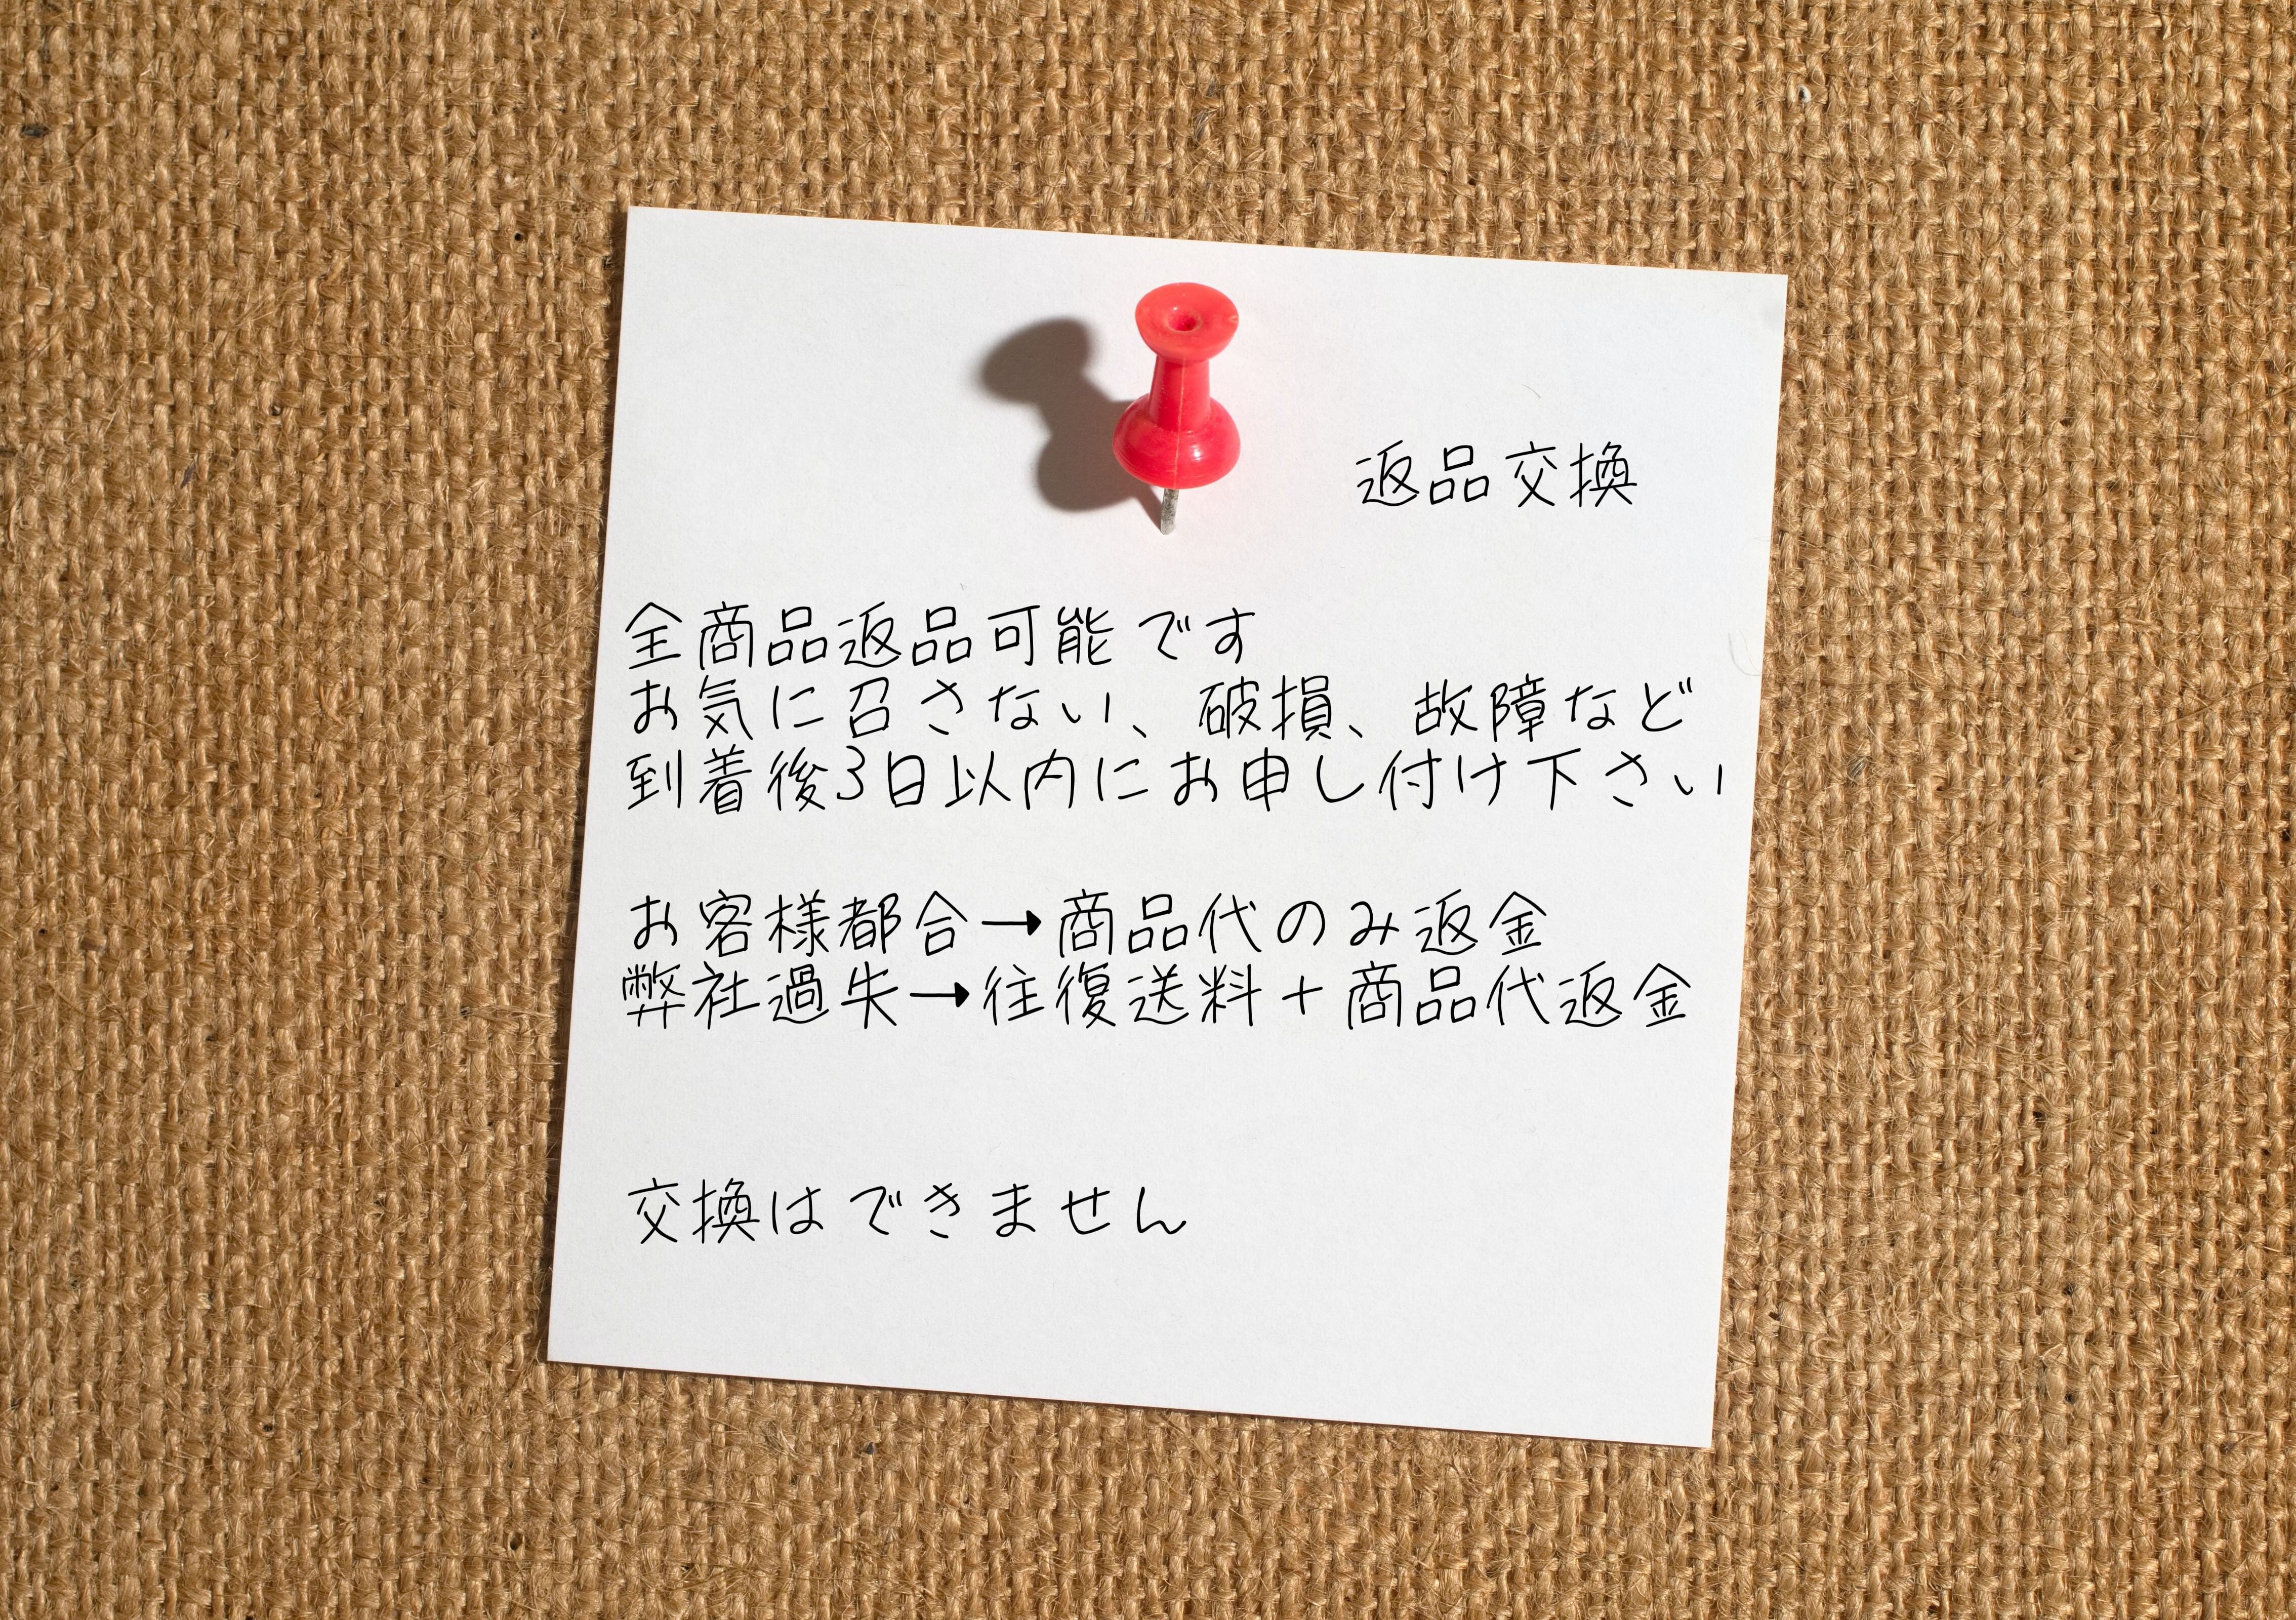 返品交換
全商品返品可能です
お気に召さない、破損、故障など
到着後3日以内にお申し付け下さい
お客様都合→商品代のみ返金
弊社過失→往復送料+商品代返金
交換はできません